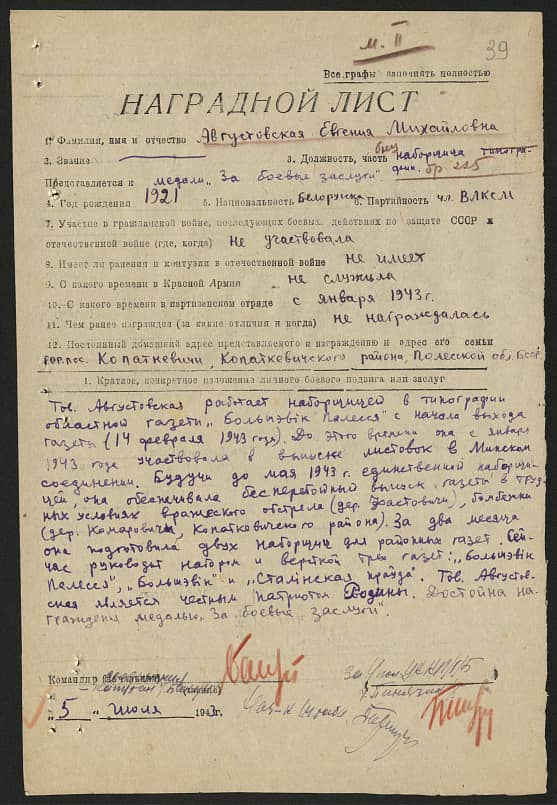 м. II
39
Все графы заполнять полностью
НАГРАДНОЙ ЛИСТ
1. Фамилия, имя и отчество Августовская Евгения Михайловна
2. Звание 3. Должность, часть наборщица типогра-
фии. бр. 225
Представляется к медали „За боевые заслуги"
4. Год рождения 1921 5. Национальность Белоруска 6. Партийность чл. ВЛКСМ
7. Участие в гражданской войне, последующих боевых действиях по защите СССР и
отечественной войне (где, когда) не участвовала
8. Имеет ли ранения и контузии в отечественной войне не имеет
9. С какого времени в Красной Армии не служила
10. С какого времени в партизанском отряде с января 1943 г.
11. Чем ранее награжден (за какие отличия и когда) не награждалась
12. Постоянный домашний адрес представляемого к награждению и адрес его семьи
гор. пос. Копаткевичи, Копаткевичского района, Полесской обл. БССР
1. Краткое, конкретное изложение личного боевого подвига или заслуг
Тов. Августовская работает наборщицей в типографии
областной газеты „Большэвік Палесся" с начала выхода
газеты (14 февраля 1943 года). До этого времени она с января
1943 года участвовала в выпуске листовок в Минском
соединении. Будучи до мая 1943 г. единственной наборщи-
цей, она обеспечивала бесперебойный выпуск газеты в труд-
ных условиях вражеского обстрела (дер. Хвастовичи), бомбежки
(дер. Комаровичи, Копаткевичского района). За два месяца
она подготовила двух наборщиц для районных газет. Сей-
час руководит набором и версткой трех газет: „Большэвік
Палесся", „Большэвік" и „Сталінская праўда". Тов. Августов-
ская является честным патриотом Родины. Достойна на-
граждения медалью „За боевые заслуги".
Командир
„5" июля 1943 г.
Нач-к штаба